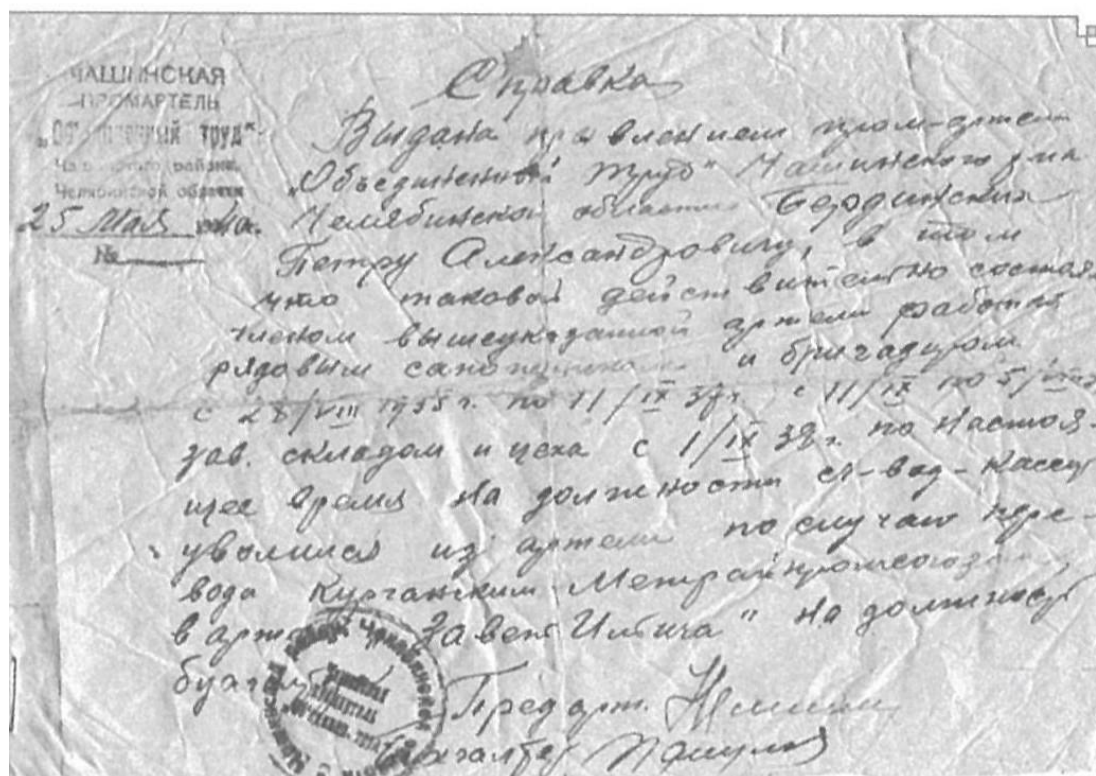 ЧАШИНСКАЯ
ПРОМАРТЕЛЬ
„Объединенный труд"
Чашинского района
Челябинской области
25 Мая 1940г.
№
Справка
Выдана правлением пром-артели
„Объединенный труд" Чашинского р-на
Челябинской области Бердинских
Петру Александровичу, в том
что таковой действительно состоял
членом вышеуказанной артели работал
рядовым сапожником и бригадиром
с 28/VIII 1935г. по 11/IX 37г. с 11/IX по 5/VIII
зав. складом и цеха с 1/IX 38г. по настоя-
щее время на должности
уволился из артели по случаю пере-
вода Курганским Межрайпромсоюзом
в артель „Завет Ильича" на должность
бухгалтера
Пред арт.
Бухгалтер